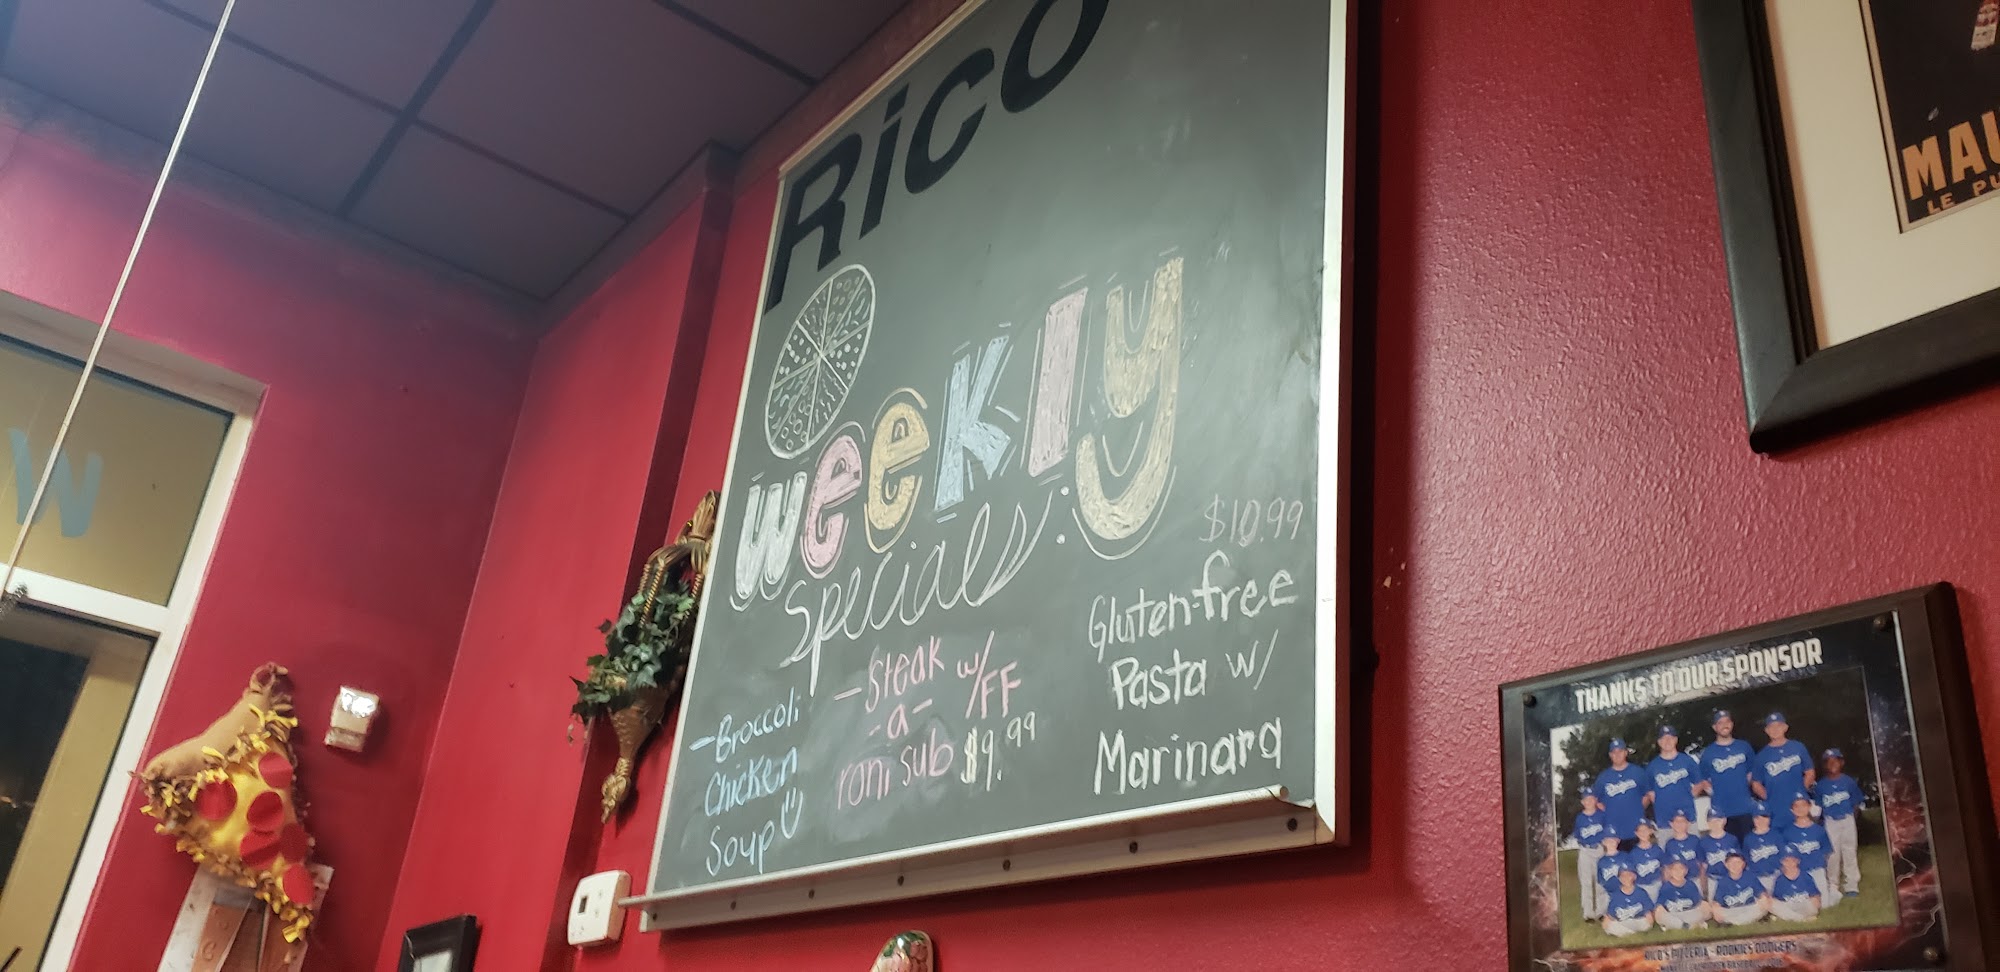 Rico
weekly
specials:
-Broccoli
Chicken
Soup
-steak w/
-a- FF
roni sub $9.99
$10.99
Gluten-free
Pasta w/
Marinara
W
MAU
LE PU
THANKS TO OUR SPONSOR
Dodgers
RICO'S PIZZERIA - ROOKIES DODGERS